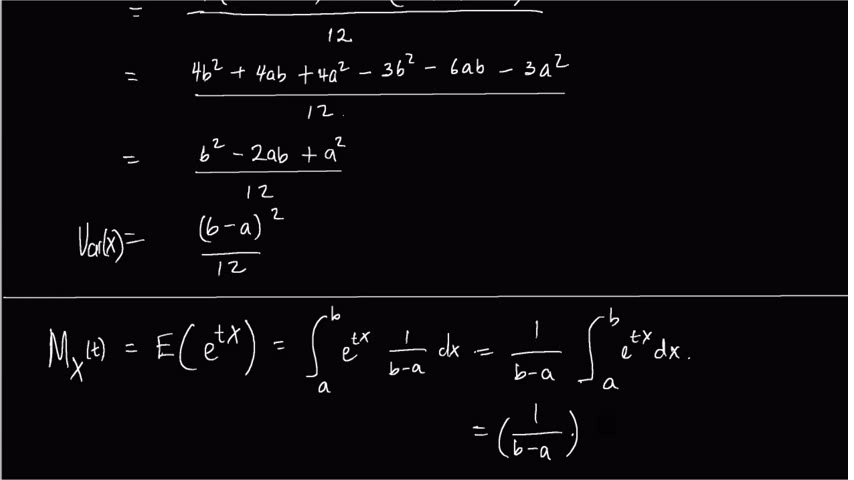 =
12
= 4b² + 4ab + 4a² − 3b² − 6ab − 3a² / 12.
= b² − 2ab + a² / 12
Var(x) = (b−a)² / 12
M_X(t) = E(e^{tX}) = ∫_a^b e^{tx} 1/(b−a) dx = 1/(b−a) ∫_a^b e^{tx} dx.
= (1/(b−a)) ·